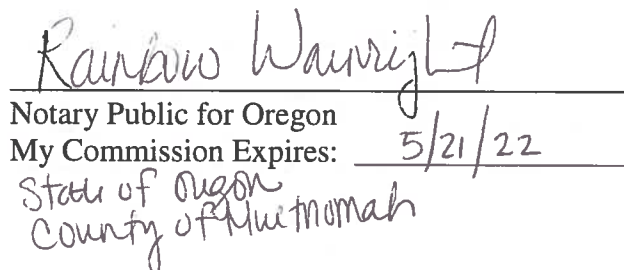 Rainbow Wainright
Notary Public for Oregon
My Commission Expires: 5/21/22
State of Oregon
County of Multnomah